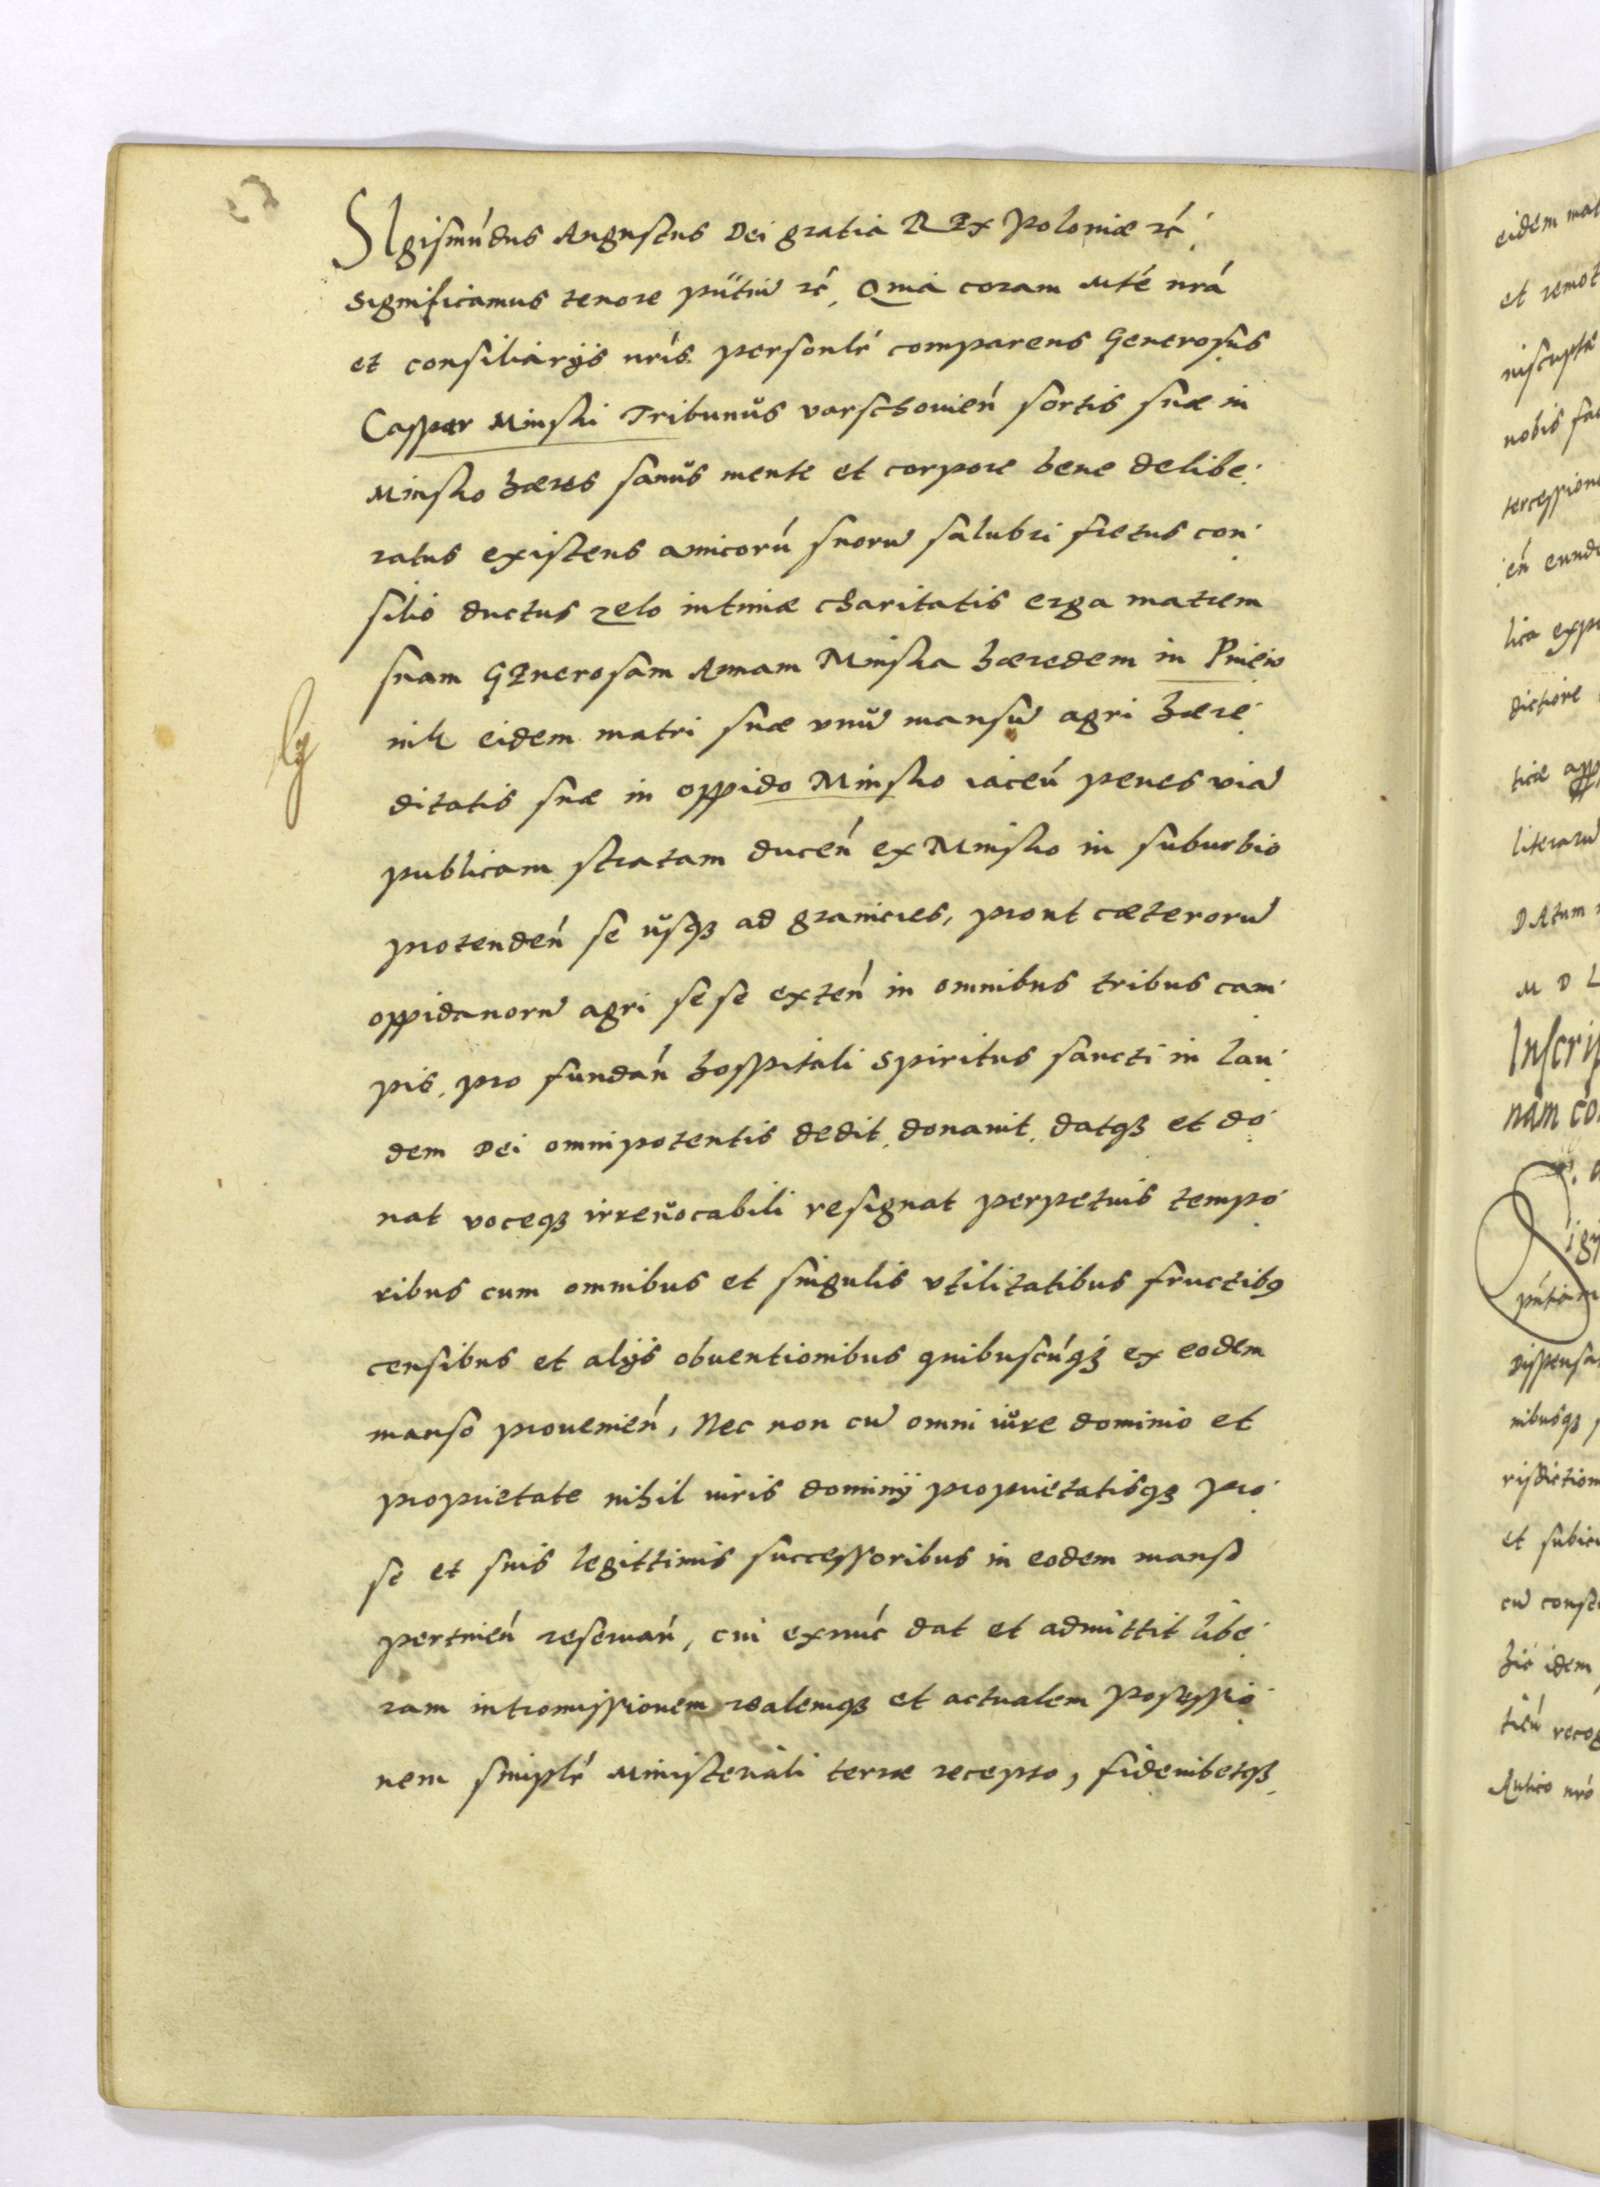 SIgismúdus Augustus Dei gratia REx Poloniæ rć.
Significamus tenore pntiu rć. Quia coram Mté nrá
et consiliarijs nrís personlr comparens Generosus
Casper Minski Tribunus varschouień sortis suæ in
Minsko hæres sanus mente et corpore bene delibe
ratus existens amicorú suoru salubri fretus con
silio ductus zelo intimæ charitatis erga matrem
suam GEnerosam Annam Minska hæredem in Pniew
nik eidem matri suæ vnu mansu agri hære
ditatis suæ in oppido Minsko iaceń penes via
publicam stratam duceń ex Minsko in suburbio
protendeń se usqz ad granicies, prout cæteroru
oppidanoru agri sese exteń in omnibus tribus cam
pis, pro fundań hospitali Spiritus sancti in lau
dem Dei omnipotentis dedit, donauit, datqz et do
nat voceqz irreuocabili resignat perpetuis tempo
ribus cum omnibus et singulis vtilitatibus fructib9
censibus et alijs obuentionibus quibuscúqz ex eodem
manso prouenień, Nec non cu omni iure dominio et
proprietate nihil iuris dominij proprietatisqz pro
se et suis legittimis successoribus in eodem manso
pertineń reseruań, cui exnúc dat et admittit libe
ram intromissionem realemqz et actualem possessio
nem simplr Ministeriali terræ recepto, fideiubetqz
eidem mat
et remot
nobis fa
tercession
eń eund
lica exp
dictione
ticæ app
literaru
DAtum
M D L
Inscrip
nam co
Sigi
Dispensa
nibusqz
risdiction
et subic
cu
hic idem
tień recog
Aulico nró